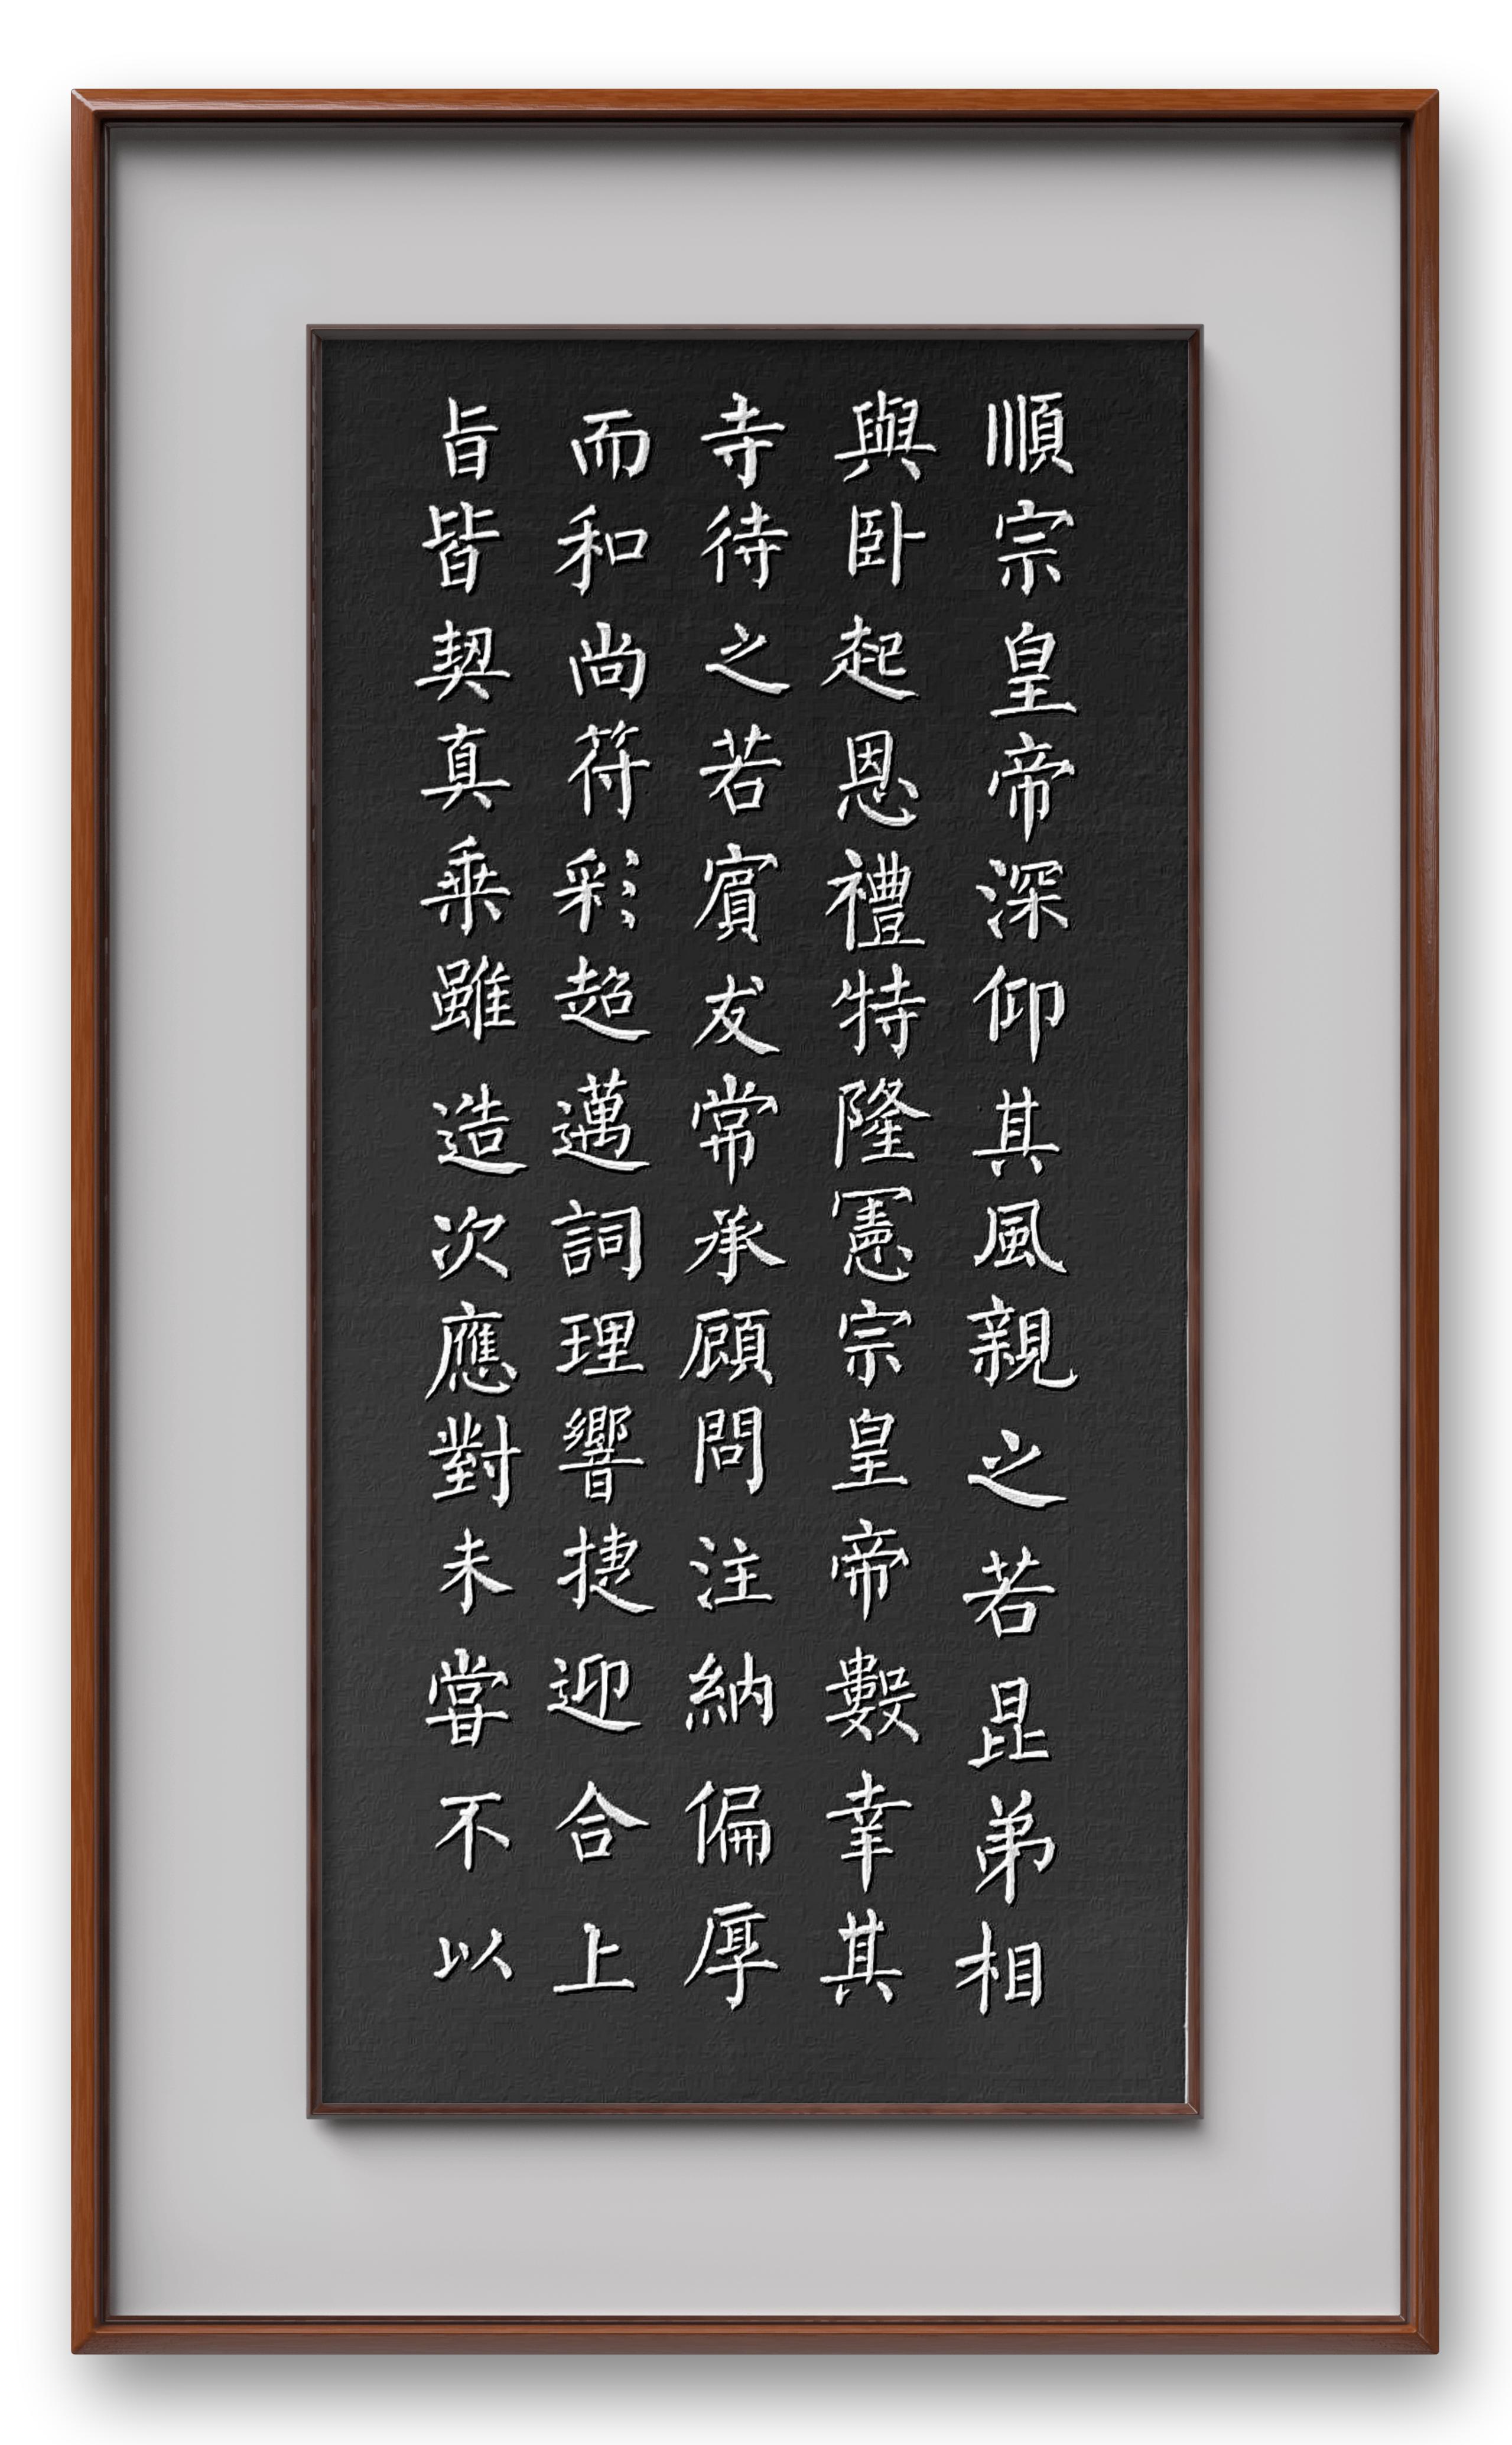 順宗皇帝深仰其風親之若昆弟相
與卧起恩禮特隆憲宗皇帝數幸其
寺待之若賓友常承顧問注納偏厚
而和尚符彩超邁詞理響捷迎合上
旨皆契真乘雖造次應對未嘗不以